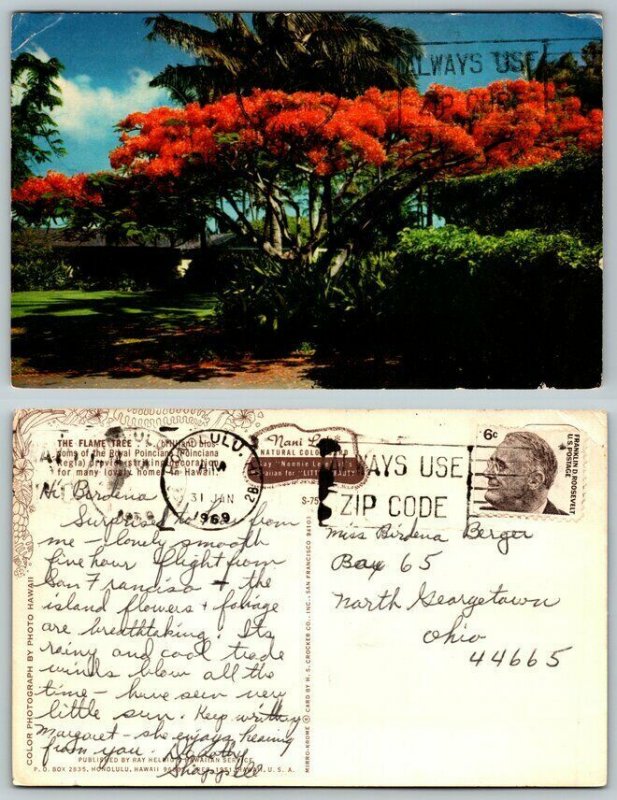 ALWAYS USE
ZIP CODE
THE FLAME TREE
Brilliant blos-
soms of the Royal Poinciana (Poinciana
Regia) provide striking decoration
for many lovely homes in Hawaii.
Nani Li'i
NATURAL COLOR CARD
Say "Nonnie Lee"
Hawaiian for "LITTLE BEAUTY"
LULU,
AM
31 JAN
1969
2B
WAYS USE
ZIP CODE
6¢
FRANKLIN D. ROOSEVELT
U.S. POSTAGE
Hi Birdena
Surprised to hear from
me – lovely smooth
five hour flight from
San Francisco + the
island flowers + foliage
are breathtaking. Its
rainy and cool trade
winds blow all the
time – have seen very
little sun. Keep writing
Margaret – she enjoys hearing
from you. Dorothy
Miss Birdena Berger
Box 65
North Georgetown
Ohio
44665
COLOR PHOTOGRAPH BY PHOTO HAWAII
MIRRO-KROME ® CARD BY H. S. CROCKER CO., INC., SAN FRANCISCO
PUBLISHED BY RAY HELBIG'S HAWAIIAN SERVICE
P. O. BOX 2835, HONOLULU, HAWAII U. S. A.